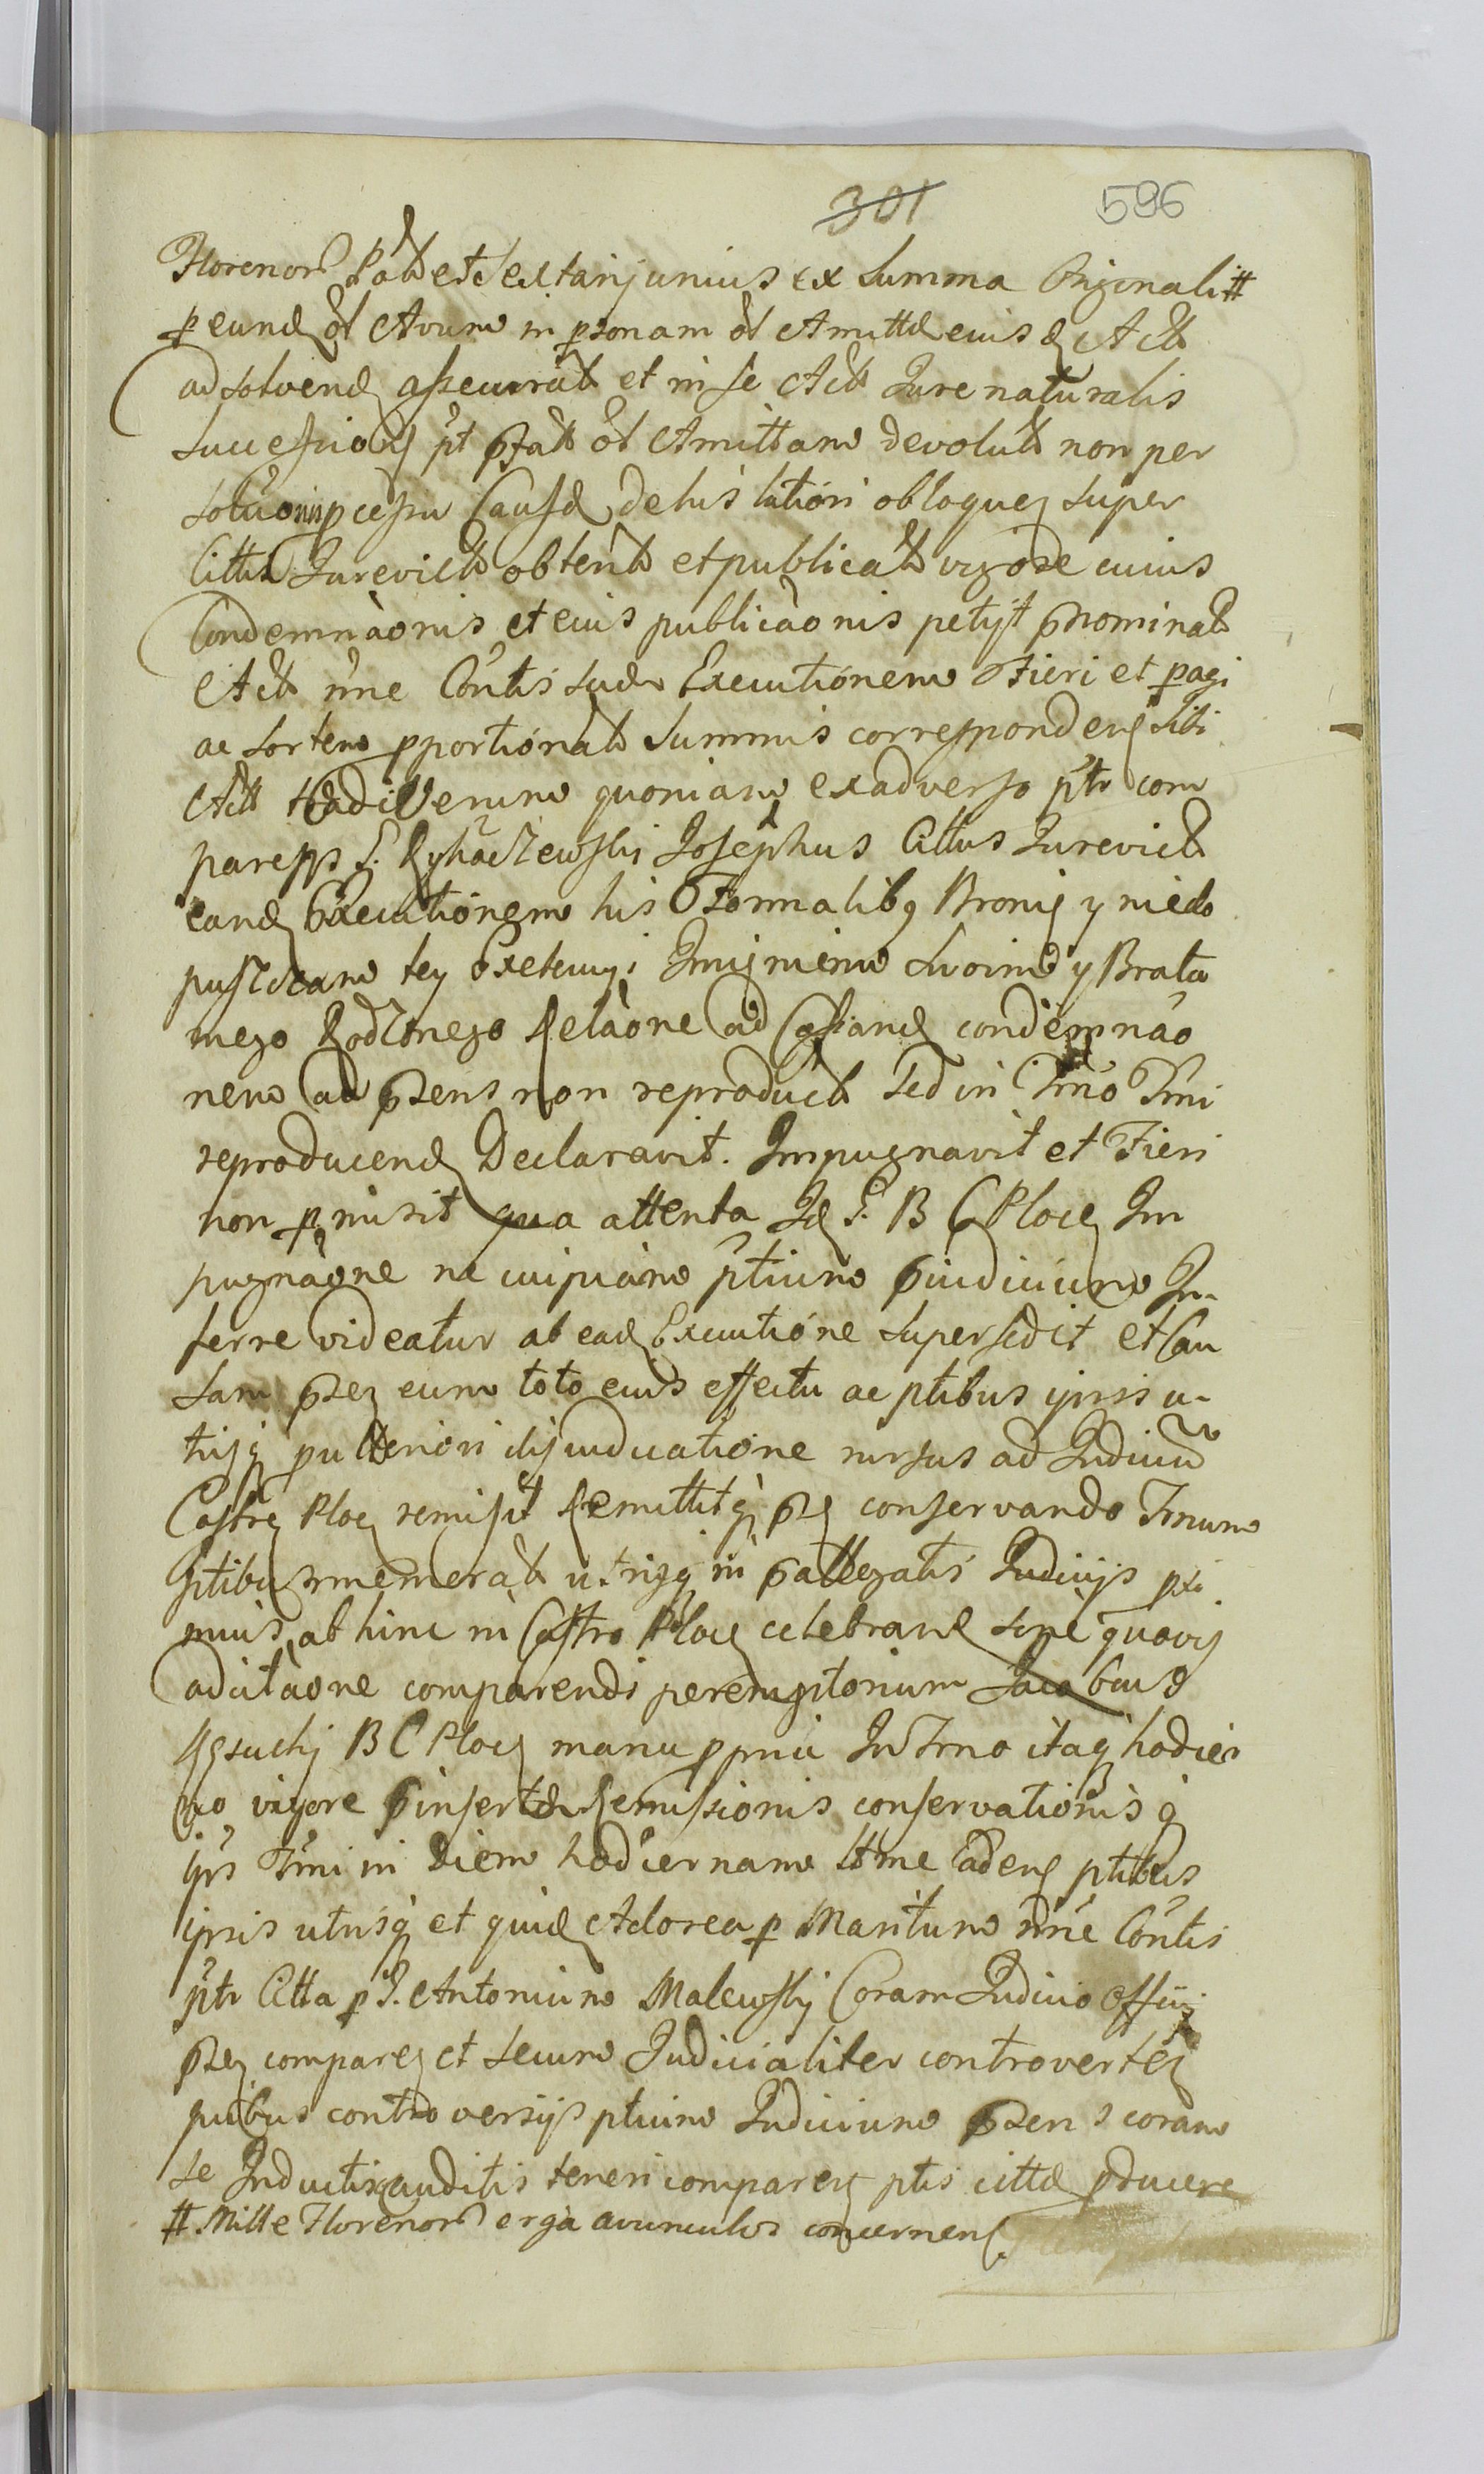 301 596
Florenor Pālt et sextarij unius ex Summa Originali #
p eund ol Avum in psonam ol Amittæ eiusd Act
ad solvend assecurāt et in se Act Jure naturalis
Successionis pt pfatt ol Amittam devolut non per
causæ de his latiori obloquen Super
Cittis Jurevict obtent et publicāt vigore cuius
Condemnaõnis et eius publicaõnis petijt pnominat
Act rõne Contis suæ Executionem Fieri et pagi
ac sortem pportionāt Summis corresponden sibi
Act tradi Verum quoniam ex adverso ptr com
parens G. Rychaczewski Josephus Cittus Jurevict
eand Executionem his Formalibq Bronię y niedo
puszczam tey Exekucyi Imieniem Swoim y Brata
mego Rodzonego Relaõne ad Cassand condemnaõ
nem ad psens non reproduct Sed in Trno Trni
reproducend Declaravit. Impugnavit et Fieri
non pmisit qua attenta Id G. B C Ploc Im
pugnaõne ne cuipiam ptium piudicium In-
ferre videatur ab ead Executione Supersedit et Cau
Sam psen cum toto eius effectu ac ptibus ipsis u-
trisq p ulteriori dijudicatione rursus ad Judiciũ
Castren Ploc remisit Remittitq ps conservando Trnum
ptibus memorāt utrisq in pallegatis Judicijs pxi
mius abhinc in Castro Ploc celebrand sine quavis
adcitaõne comparendi peremptorium Jacobus
BC Ploc manu ppria In Trno itaq hodier
no vigore pinsertæ Remissionis conservationis q
ips Trni in diem hodiernam ltme Caden ptibus
ipsis utrisq et quid Actorea p Maritum rõne Contis
ptr Citta p G. Antonium Malewski Coram Judicio Officij
psen comparen et Secum Judicialiter controverten
quibus controversijs ptium Judicium psens coram
se Inductis auditis teneri comparen ptis cittæ pducere
# Mille Florenor erga avunculos concernen